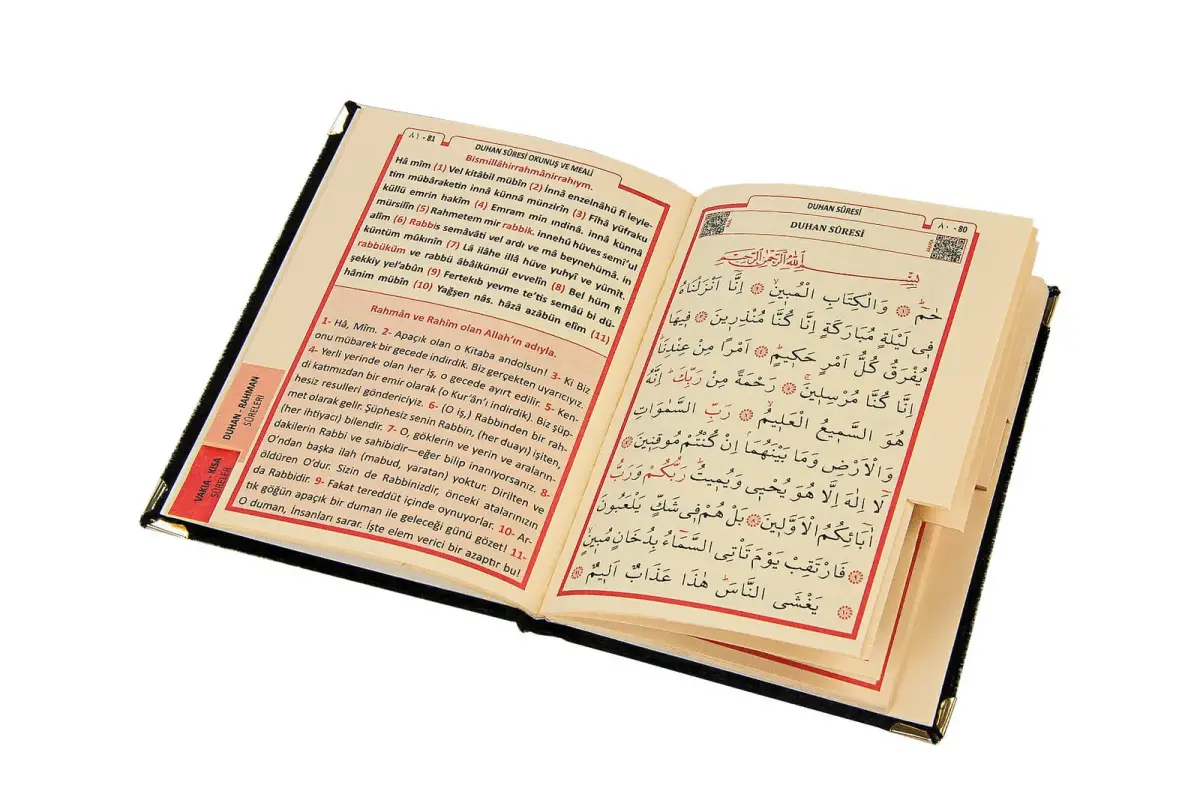 DUHAN SÛRESİ
٨٠ - 80
DUHAN SÛRESİ
بِسْمِ اللّٰهِ الرَّحْمٰنِ الرَّحٖيمِ
حٰمٓ وَالْكِتَابِ الْمُبٖينِ اِنَّٓا اَنْزَلْنَاهُ
فٖى لَيْلَةٍ مُبَارَكَةٍ اِنَّا كُنَّا مُنْذِرٖينَ فٖيهَا
يُفْرَقُ كُلُّ اَمْرٍ حَكٖيمٍ اَمْرًا مِنْ عِنْدِنَا
اِنَّا كُنَّا مُرْسِلٖينَ رَحْمَةً مِنْ رَبِّكَ اِنَّهُ
هُوَ السَّمٖيعُ الْعَلٖيمُ رَبِّ السَّمٰوَاتِ
وَالْاَرْضِ وَمَا بَيْنَهُمَا اِنْ كُنْتُمْ مُوقِنٖينَ
لَٓا اِلٰهَ اِلَّا هُوَ يُحْيٖى وَيُمٖيتُ رَبُّكُمْ وَرَبُّ
اٰبَٓائِكُمُ الْاَوَّلٖينَ بَلْ هُمْ فٖى شَكٍّ يَلْعَبُونَ
فَارْتَقِبْ يَوْمَ تَاْتِى السَّمَٓاءُ بِدُخَانٍ مُبٖينٍ
يَغْشَى النَّاسَ هٰذَا عَذَابٌ اَلٖيمٌ
٨١ - 81
DUHAN SÛRESİ OKUNUŞ VE MEALİ
Bismillâhirrahmânirrahıym.
Hâ mîm (1) Vel kitâbil mübîn (2) İnnâ enzelnâhü fî leyle-
tim mübâraketin innâ künnâ münzirîn (3) Fîhâ yüfraku
küllü emrin hakîm (4) Emram min ındinâ. innâ künnâ
mürsilîn (5) Rahmetem mir rabbik. innehû hüves semî'ul
alîm (6) Rabbis semâvâti vel ardı ve mâ beynehümâ. in
küntüm mûkınîn (7) Lâ ilâhe illâ hüve yuhyî ve yümît.
rabbüküm ve rabbü âbâikümül evvelîn (8) Bel hüm fî
şekkiy yel'abûn (9) Fertekıb yevme te'tis semâü bi dü-
hânim mübîn (10) Yağşen nâs. hâzâ azâbün elîm (11)
Rahmân ve Rahîm olan Allah'ın adıyla.
1- Hâ, Mîm. 2- Apaçık olan o Kitaba andolsun! 3- Ki Biz
onu mübarek bir gecede indirdik. Biz gerçekten uyarıcıyız.
4- Yerli yerinde olan her iş, o gecede ayırt edilir. 5- Ken-
di katımızdan bir emir olarak (o Kur'ân'ı indirdik). Biz şüp-
hesiz resulleri göndericiyiz. 6- (O iş,) Rabbinden bir rah-
met olarak gelir. Şüphesiz senin Rabbin, (her duayı) işiten,
(her ihtiyacı) bilendir. 7- O, göklerin ve yerin ve araların-
dakilerin Rabbi ve sahibidir—eğer bilip inanıyorsanız. 8-
O'ndan başka ilah (mabud, yaratan) yoktur. Dirilten ve
öldüren O'dur. Sizin de Rabbinizdir, önceki atalarınızın
da Rabbidir. 9- Fakat tereddüt içinde oynuyorlar. 10- Ar-
tık göğün apaçık bir duman ile geleceği günü gözet! 11-
O duman, İnsanları sarar. İşte elem verici bir azaptır bu!
DUHAN - RAHMAN
SÛRELERİ
VAKIA - KISA
SÛRELER